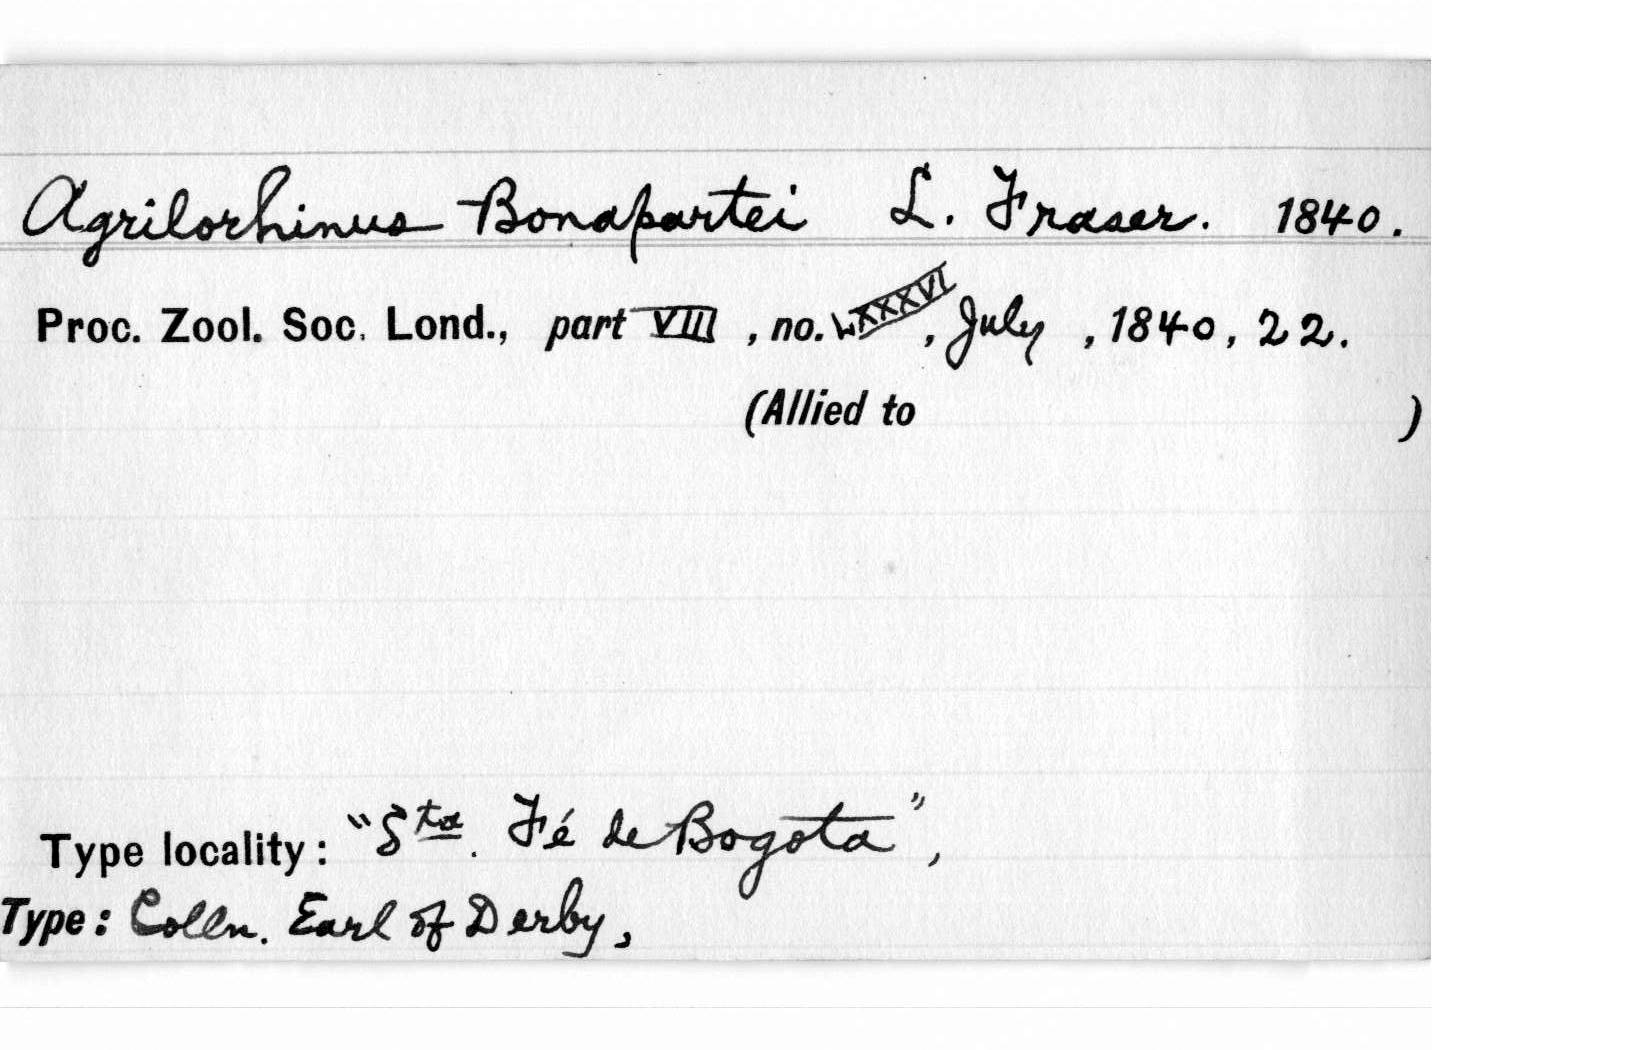 Agrilorhinus Bonapartei L. Fraser. 1840.
Proc. Zool. Soc. Lond., part VIII, no. LXXXVI, July, 1840, 22.
(Allied to )
Type locality: "Sta. Fé de Bogota",
Type: Colln. Earl of Derby,